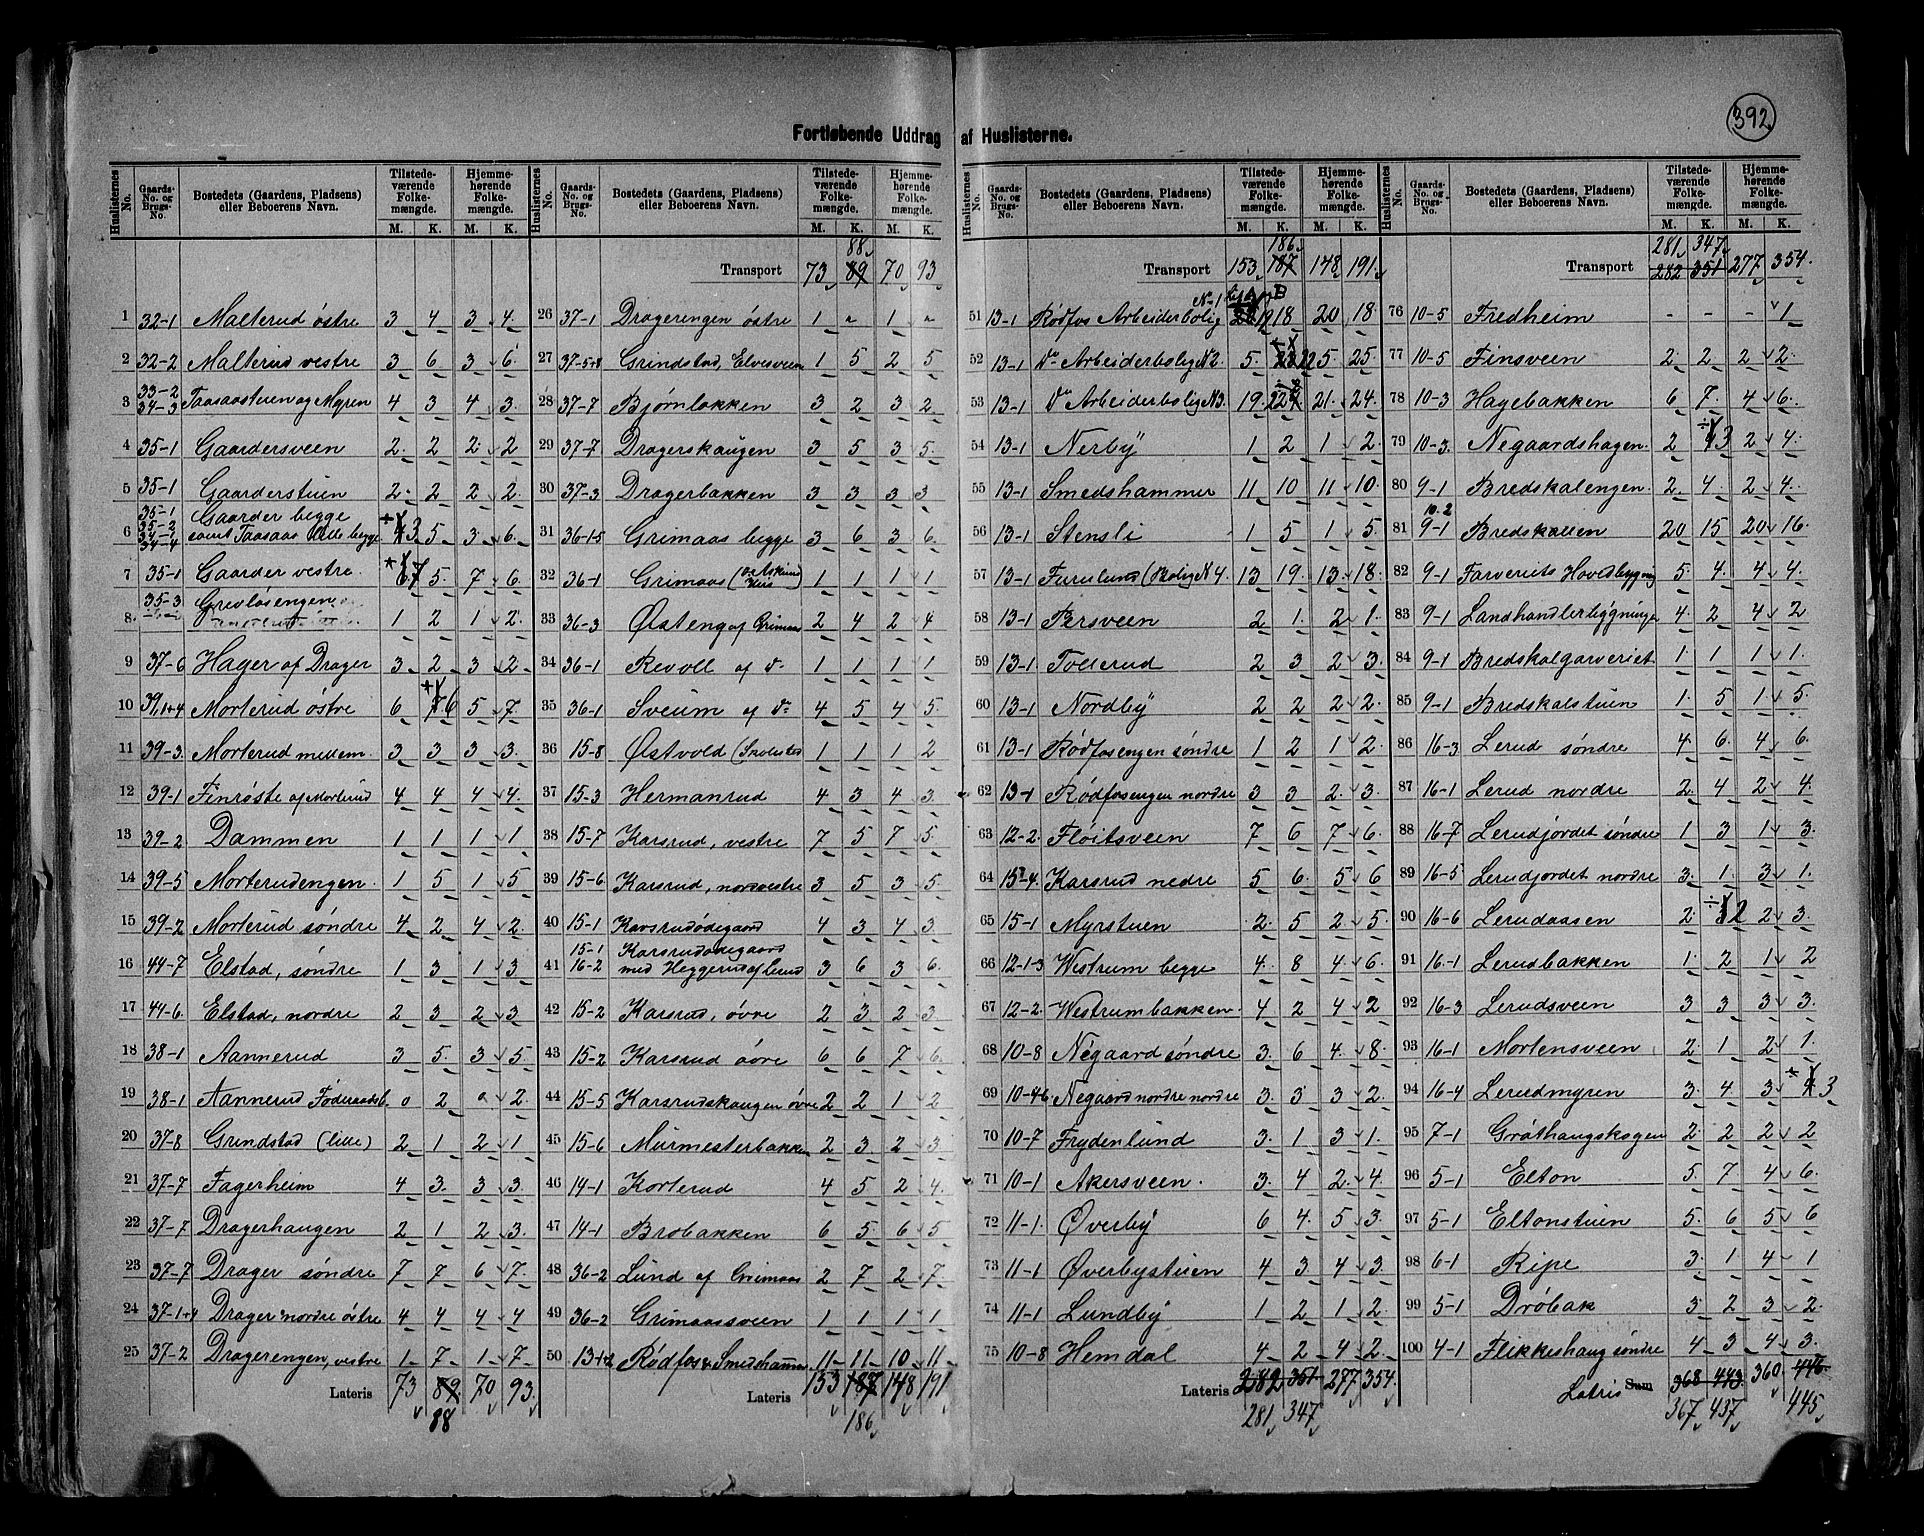 392
Fortløbende Uddrag af Huslisterne.
Huslisternes No. | Gaards-No. og Brugs-No. | Bostedets (Gaardens, Pladsens) eller Beboerens Navn. | Tilstedeværende Folkemængde. M. K. | Hjemmehørende Folkemængde. M. K.
1 32-1 Malterud østre 3 4 3 4
2 32-2 Malterud vestre 3 6 3 6
3 33-2 34-3 Taasaastuen og Myren 4 3 4 3
4 35-1 Gaardersveen 2 2 2 2
5 35-1 Gaarderstuen 2 2 2 2
6 35-1 35-2 34-1 34-4 Gaarder begge samt Taasaas Lille begge 3 5 3 6
7 35-1 Gaarder vestre 7 5 7 6
8 35-3 Grevlösengen 1 2 1 2
9 37-6 Hager af Drager 3 2 3 2
10 39,1+4 Morterud östre 6 6 5 7
11 39-3 Morterud mellem 3 3 3 3
12 39-1 Finröste af Morterud 4 4 4 4
13 39-2 Dammen 1 1 1 1
14 39-5 Morterudengen 1 5 1 5
15 39-2 Morterud söndre 4 2 4 2
16 44-7 Elstad, söndre 1 3 1 3
17 44-6 Elstad, nordre 2 3 2 3
18 38-1 Aannerud 3 5 3 5
19 38-1 Aannerud Föderaadsb. 0 2 0 2
20 37-8 Grindstad (lille) 2 1 2 1
21 37-7 Fagerheim 4 3 3 3
22 37-7 Dragerhaugen 2 1 2 3
23 37-7 Drager söndre 7 7 6 7
24 37-1+4 Drager nordre östre 4 4 4 4
25 37-2 Dragerengen, vestre 1 7 1 7
Lateris 73 89 70 93
88
88
Transport 73 89 70 93
26 37-1 Dragerengen östre 1 " 1 "
27 37-5+8 Grindstad, Elvesveen 1 5 2 5
28 37-7 Bjørnbakken 3 2 3 2
29 37-7 Dragerskaugen 3 5 3 5
30 37-3 Dragerbakken 3 3 3 3
31 36-1-5 Grimaas begge 3 6 3 6
32 36-1 Grimaas 1 1 1 1
33 36-3 Østeng af Grimaas 2 4 2 4
34 36-1 Revoll af do 1 1 1 1
35 36-1 Sveum af do 4 5 4 5
36 15-8 Østvold (Skolested 1 1 1 2
37 15-3 Hermanrud 4 3 4 3
38 15-7 Karsrud, vestre 7 5 7 5
39 15-6 Karsrud, nordvestre 3 5 3 5
40 15-1 Karsrudödegaard 4 3 4 3
41 15-1 16-2 Karsrudödegaard med Heggerud af Lerud 3 6 3 6
42 15-2 Karsrud, övre 2 3 2 3
43 15-2 Karsrud övre 6 6 7 6
44 15-5 Karsrudskaugen övre 2 2 1 2
45 15-6 Murmesterbakken 2 3 2 3
46 14-1 Korterud 4 5 2 4
47 14-1 Brobakken 6 5 6 5
48 36-2 Lund af Grimaas 2 7 2 7
49 36-2 Grimaassveen 1 1 1 1
50 13-1+2 Rødfos & Smedshamm. 11 11 10 11
Lateris 153 187 148 191
186
186
Transport 153 187 148 191
51 13-1 Rødfos Arbeiderbolig No 1 19 18 20 18
52 13-1 Do Arbeiderbolig N 2. 5 22 25 25
53 13-1 Do Arbeiderbolig N 3. 19 22 21 24
54 13-1 Nerby 1 2 1 2
55 13-1 Smedshammer 11 10 11 10
56 13-1 Stensli 1 5 1 5
57 13-1 Furulund (Bolig N 4. 13 19 13 18
58 13-1 Persveen 2 1 2 1
59 13-1 Tollerud 2 3 2 3
60 13-1 Nordby 2 2 2 2
61 13-1 Rödfosengen söndre 1 2 1 2
62 13-1 Rödfosengen nordre 3 3 2 3
63 12-2 Flöitsveen 7 6 7 6
64 15-4 Karsrud nedre 5 6 5 6
65 15-1 Myrstuen 2 5 2 5
66 12-1-3 Westrum begge 4 8 4 6
67 12-2 Westrumbakken 4 2 4 2
68 10-8 Negaard söndre 3 6 4 8
69 10-4-6 Negaard nordre nordre 3 3 3 2
70 10-7 Frydenlund 3 1 3 1
71 10-1 Akersveen 3 4 2 4
72 11-1 Øverby 6 4 5 3
73 11-1 Øverbystuen 4 3 4 3
74 11-1 Lundby 1 2 1 2
75 10-8 Hemdal 4 2 4 2
Lateris 282 351 277 354
281 347
281 347
Transport 282 351 277 354
76 10-5 Fredheim - - - 1
77 10-5 Finsveen 2 2 2 2
78 10-3 Hagebakken 6 7 4 6
79 10-3 Negaardshagen 2 3 2 4
80 9-1 Bredskalengen 2 4 2 4
81 10.2 9-1 Bredskallen 20 15 20 16
82 9-1 Farveriets Hovedbygning 5 4 4 4
83 9-1 Landhandlerbygningen 4 2 4 2
84 9-1 Bredskalgarveriet 1 1 1 1
85 9-1 Bredskalstuen 1 5 1 5
86 16-3 Lerud söndre 4 6 4 6
87 16-1 Lerud nordre 2 4 2 4
88 16-7 Lerudjordet söndre 1 3 1 3
89 16-5 Lerudjordet nordre 3 1 3 1
90 16-6 Lerudaasen 2 2 2 3
91 16-1 Lerudbakken 1 2 1 2
92 16-3 Lerudsveen 3 3 3 3
93 16-1 Mortensveen 2 1 2 1
94 16-4 Lerudmyren 3 4 3 3
95 7-1 Gråthaugskogen 2 2 2 2
96 5-1 Elton 5 7 4 6
97 5-1 Eltonstuen 5 6 5 6
98 6-1 Ripe 3 1 4 1
99 5-1 Dröbak 3 2 3 2
100 4-1 Flikkeshaug söndre 4 3 4 3
Latris Sum 368 443 360 446
367 437 445